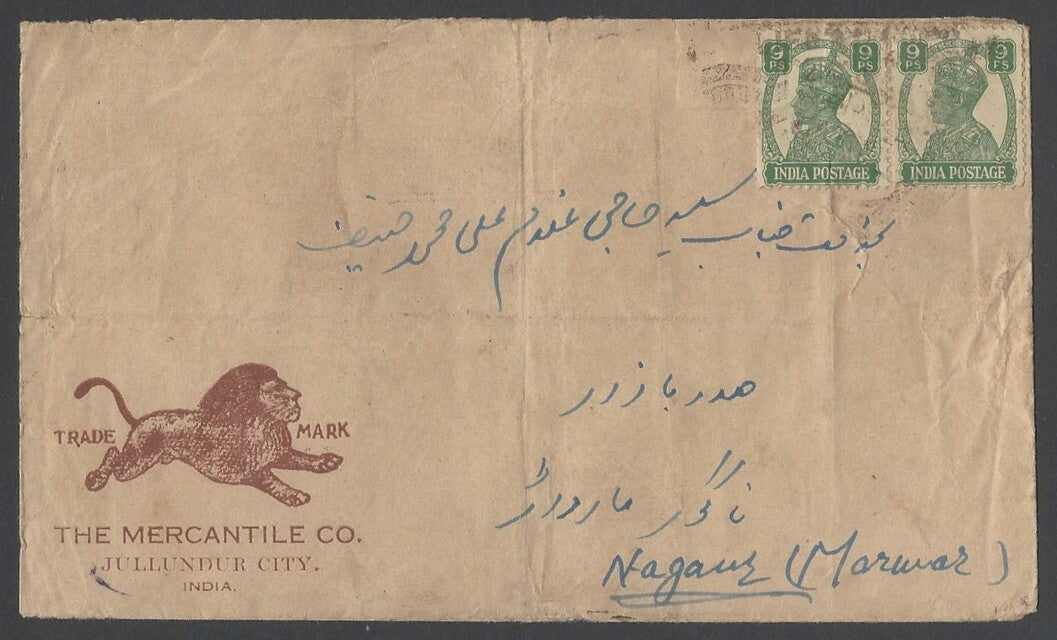 9 PS 9 PS
INDIA POSTAGE
9 PS 9 PS
INDIA POSTAGE
بخدمت جناب سید حاجی غلام علی محمد حنیف
صدر بازار
ناگور مارواڑ
Nagaur (Marwar)
TRADE MARK
THE MERCANTILE CO.
JULLUNDUR CITY.
INDIA.